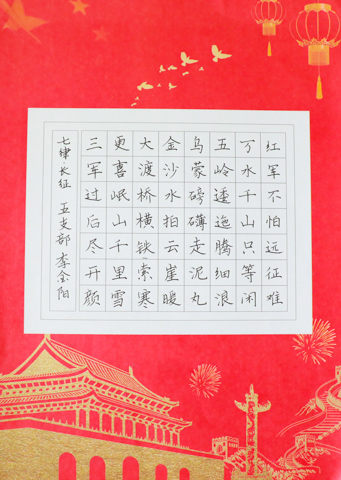 红军不怕远征难
万水千山只等闲
五岭逶迤腾细浪
乌蒙磅礴走泥丸
金沙水拍云崖暖
大渡桥横铁索寒
更喜岷山千里雪
三军过后尽开颜
七律·长征 五支部 李余阳